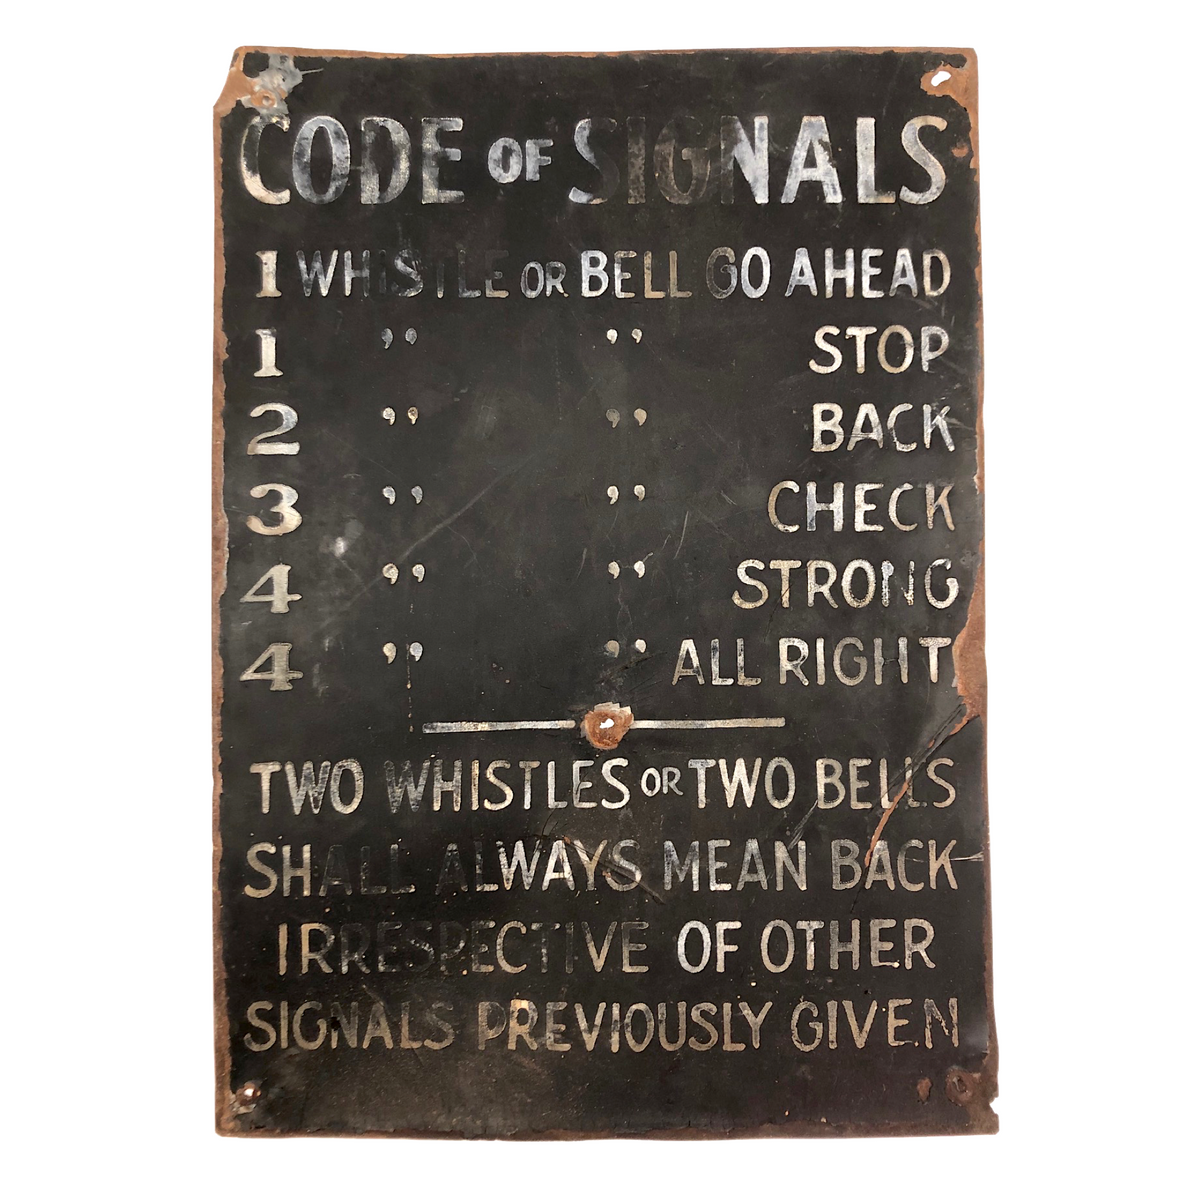 CODE OF SIGNALS
1 WHISTLE OR BELL GO AHEAD
1 ” ” STOP
2 ” ” BACK
3 ” ” CHECK
4 ” ” STRONG
4 ” ” ALL RIGHT
TWO WHISTLES OR TWO BELLS
SHALL ALWAYS MEAN BACK
IRRESPECTIVE OF OTHER
SIGNALS PREVIOUSLY GIVEN